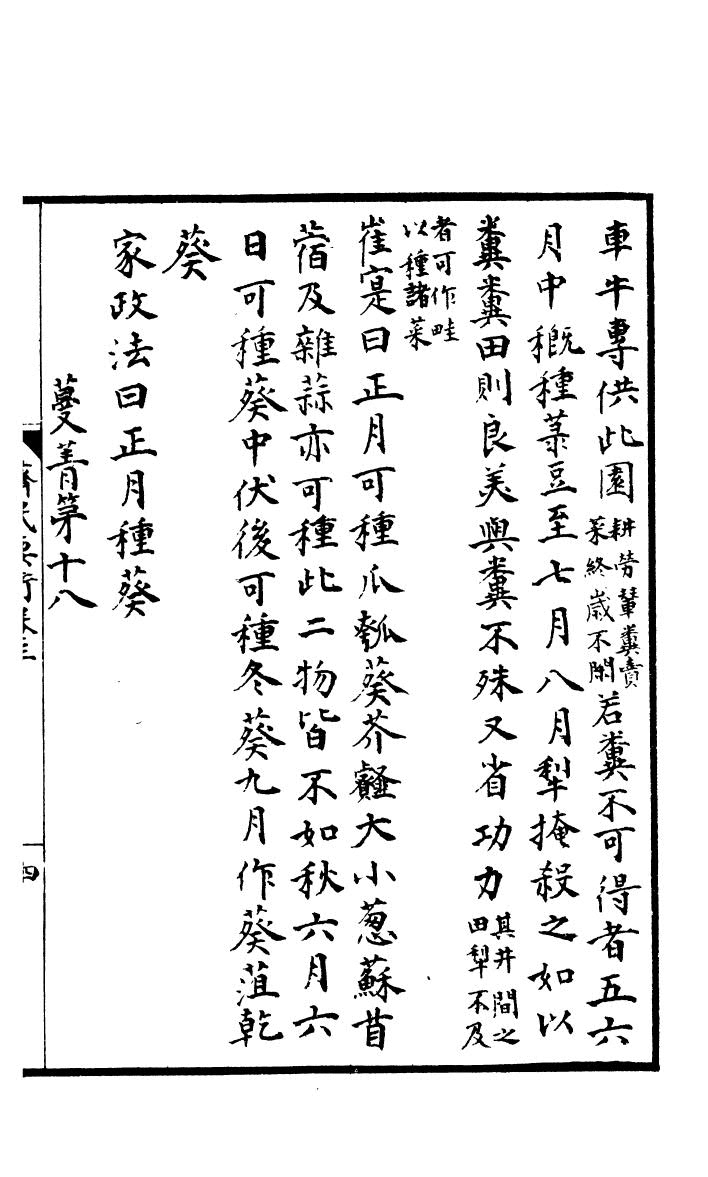 車牛專供此園耕勞輦糞賣菜終歲不閑若糞不可得者五六
月中穊種菉豆至七月八月犁掩殺之如以
糞糞田則良美與糞不殊又省功力其井間之田犁不及
者可作畦以種諸菜
崔寔曰正月可種瓜瓠葵芥䪥大小葱蘇苜
蓿及雜蒜亦可種此二物皆不如秋六月六
日可種葵中伏後可種冬葵九月作葵菹乾
葵
家政法曰正月種葵
蔓菁第十八
齊民要術卷三
四